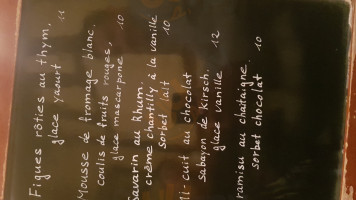 Figues rôties au thym.
glace yaourt 11
Mousse de fromage blanc.
coulis de fruits rouges,
glace mascarpone 10
Savarin au Rhum.
crème chantilly à la vanille
sorbet lait 10
Mi-cuit au chocolat
sabayon de Kirsch.
glace vanille 12
ramisu au chataigne.
sorbet chocolat 10